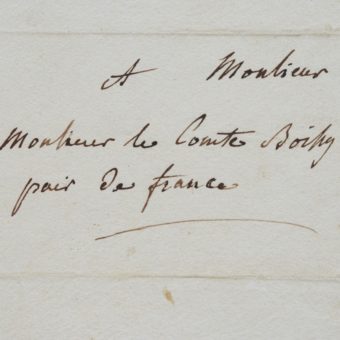 A Monsieur
Monsieur le Comte Boissy
pair de france